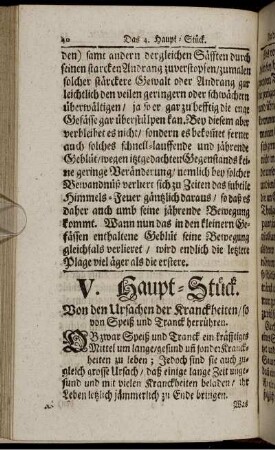 40 Das 4. Haupt-Stück.
den) samt andern dergleichen Säfften durch
seinen starcken Andrang zuverstopfen/zumalen
solcher stärckere Gewalt oder Andrang gar
leichtlich den geringern oder schwächern
überwältigen / ja wer gar zu hefftig die enge
Gefässe gar überstülpen kan. Bey diesem aber
verbleibet es nicht/ sondern es bekomet ferner
auch solches schnell-lauffende und jährende
Geblüt/wegen jetztgedachten Gegenstands kei-
ne geringe Veränderung/ nemlich bey solcher
Bewandnüß verliert sich zu Zeiten das subtile
Himmels-Feuer gäntzlich daraus/ so daß es
daher auch umb seine jährende Bewegung
kommt. Wann nun das in den kleinern Ge-
fässen enthaltene Geblüt seine Bewegung
gleichfals verlieret / wird endlich die letztere
Plage viel ärger als die erstere.
V. Haupt-Stück.
Von den Ursachen der Kranckheiten/ so
von Speiß und Tranck herrühren.
OBzwar Speiß und Tranck ein kräfftiges
Mittel um lange/gesund uñ sonder Kranck-
heiten zu leben ; Jedoch sind sie auch zu-
gleich grosse Ursach/ daß einige lange Zeit unge-
sund und mit vielen Kranckheiten beladen/ ihr
Leben letzlich jämmerlich zu Ende bringen.
Was